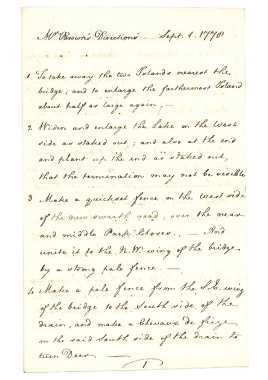 Mr. Brown's Directions — Sept. 1. 1778
1 To take away the two Islands nearest the
bridge; and to enlarge the farthermost Island
about half as large again. —
2 Widen and enlarge the Lake on the West
side as staked out; and also at the end
and plant up the end as staked out,
that the termination may not be visible
3 Make a quickset fence on the west side
of the new swarth road, over the near
and middle Park Closes. — And
unite it to the N.W. wing of the bridge
by a strong pale fence. —
4 Make a pale fence from the S.E. wing
of the bridge to the South side of the
drain, and make a Chevaux de frize
on the said South side of the drain to
turn Deer. —